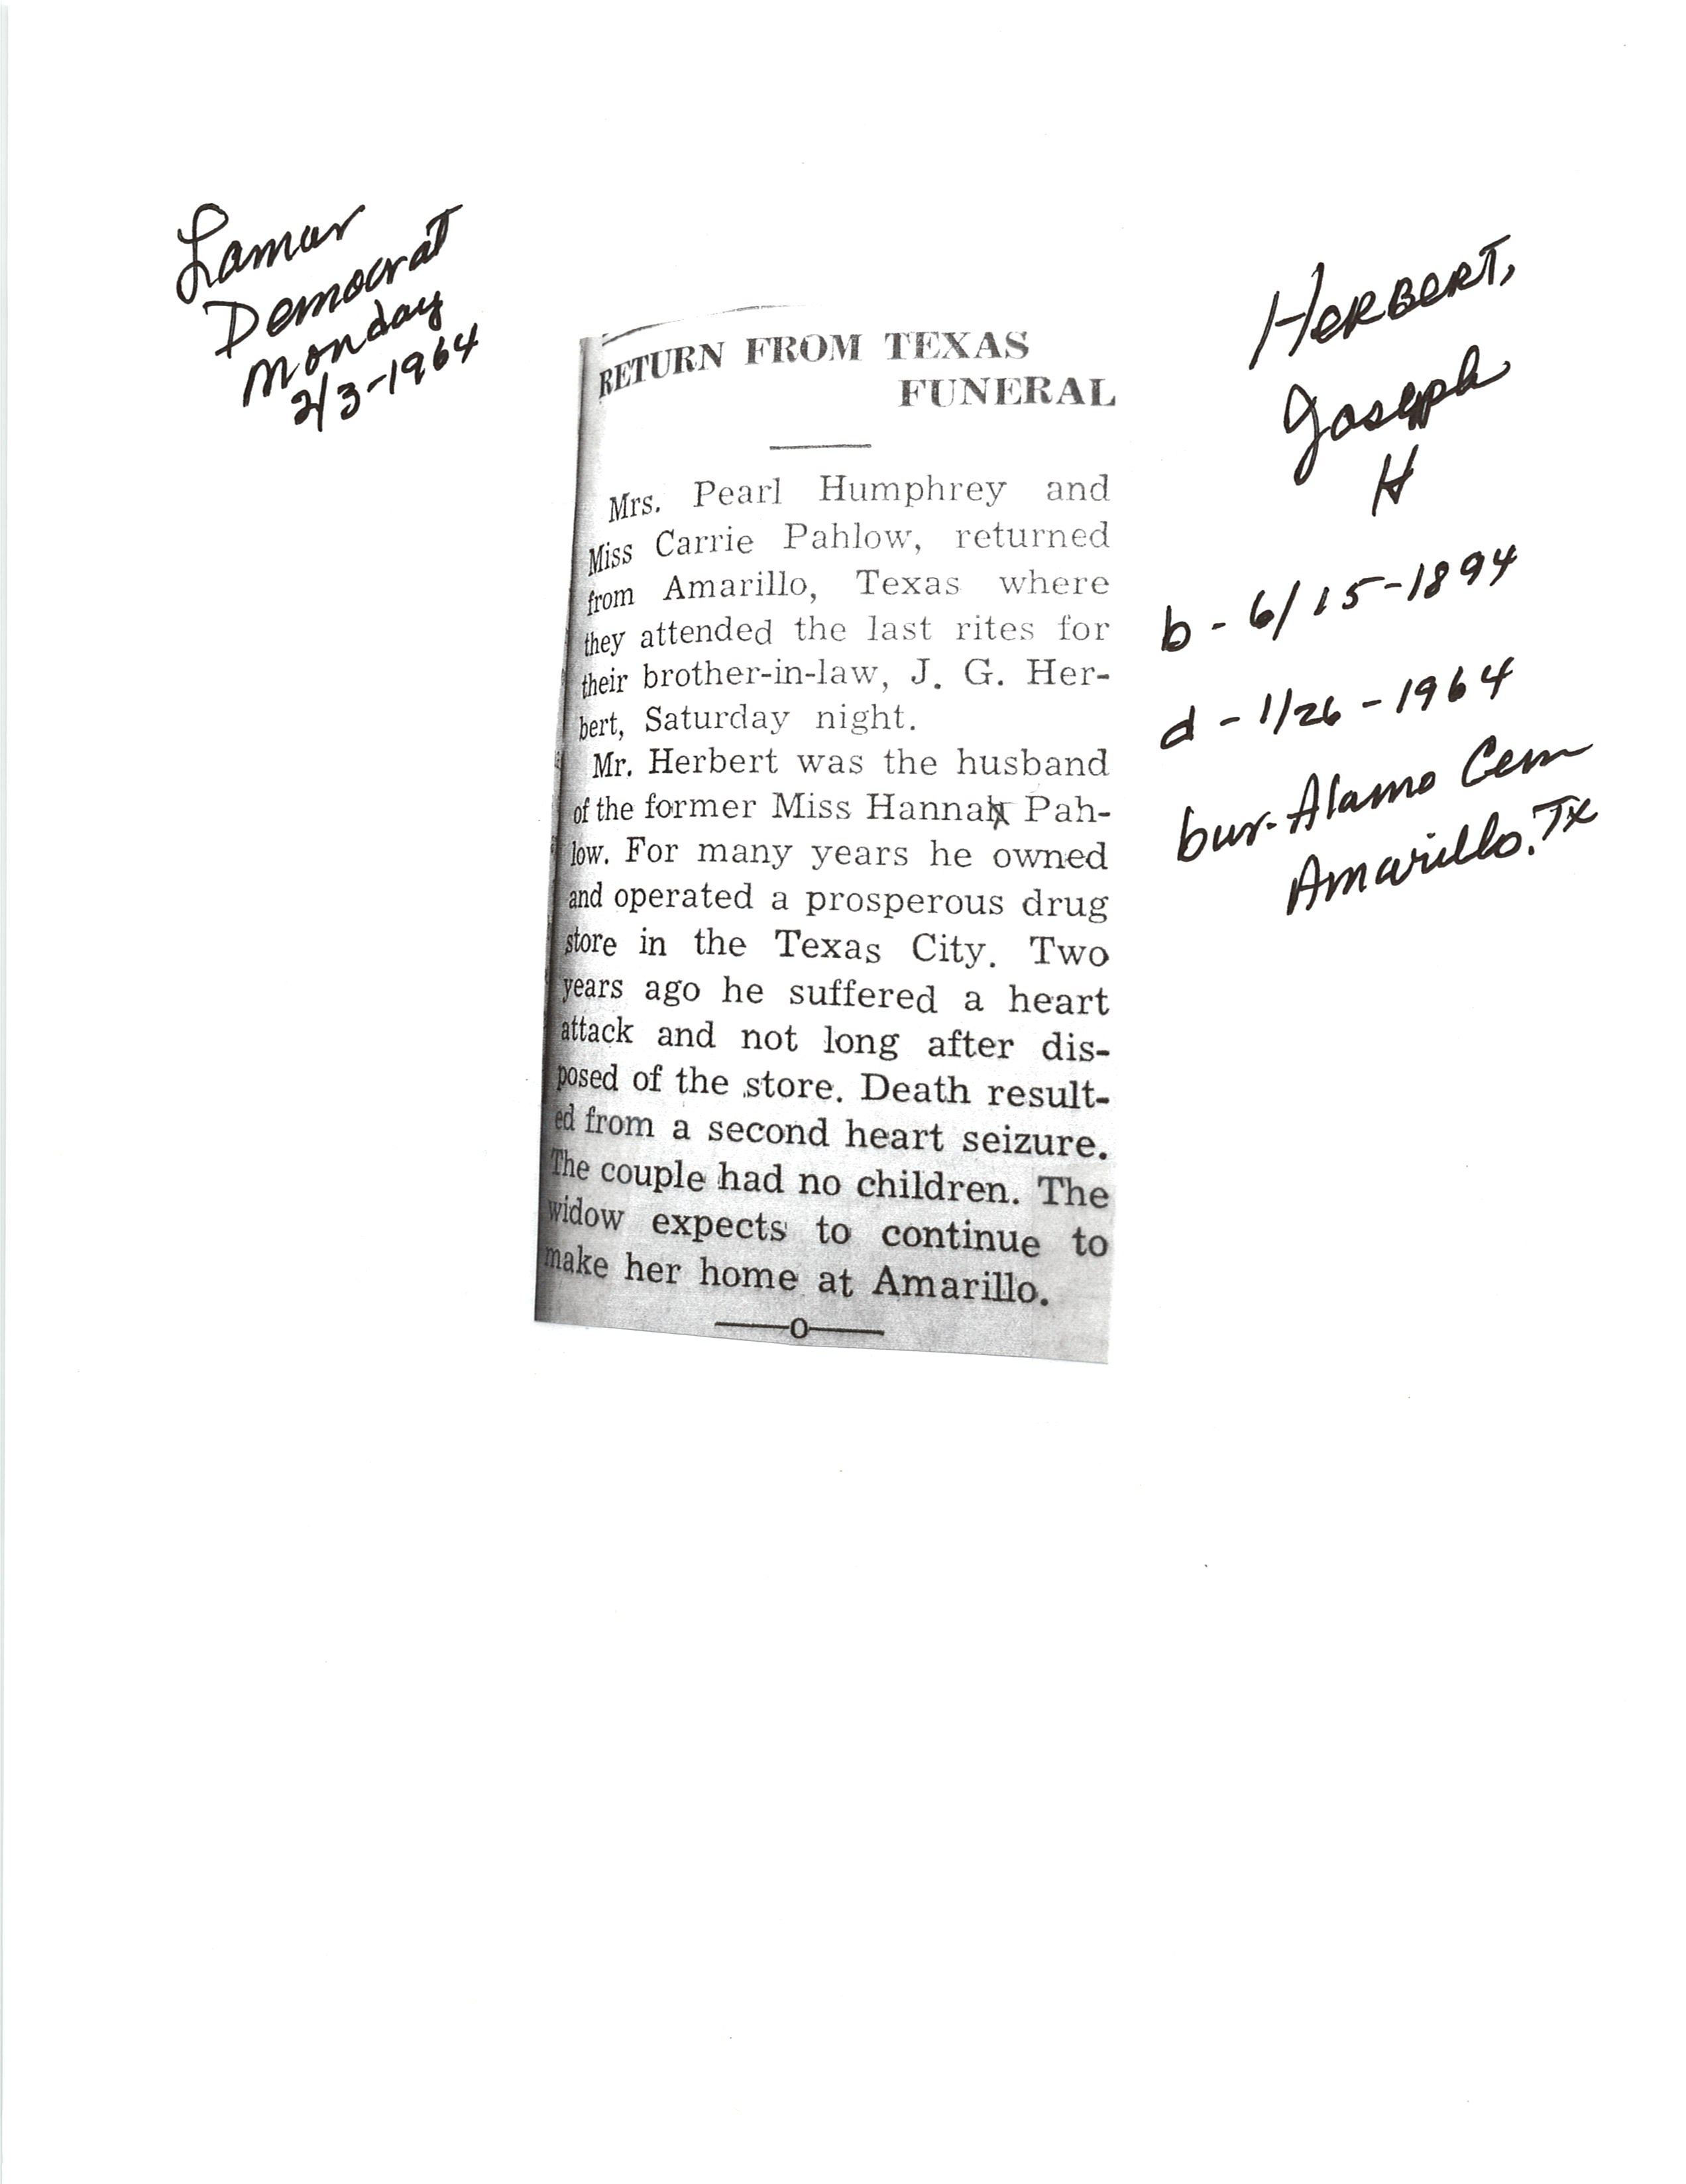 Lamar
Democrat
Monday
2/3-1964
RETURN FROM TEXAS
FUNERAL
Mrs. Pearl Humphrey and
Miss Carrie Pahlow, returned
from Amarillo, Texas where
they attended the last rites for
their brother-in-law, J. G. Her-
bert, Saturday night.
Mr. Herbert was the husband
of the former Miss Hannah Pah-
low. For many years he owned
and operated a prosperous drug
store in the Texas City. Two
years ago he suffered a heart
attack and not long after dis-
posed of the store. Death result-
ed from a second heart seizure.
The couple had no children. The
widow expects to continue to
make her home at Amarillo.
—o—
HERBERT,
Joseph
H
b - 6/15-1894
d - 1/26-1964
bur-Alamo Cem
Amarillo. Tx